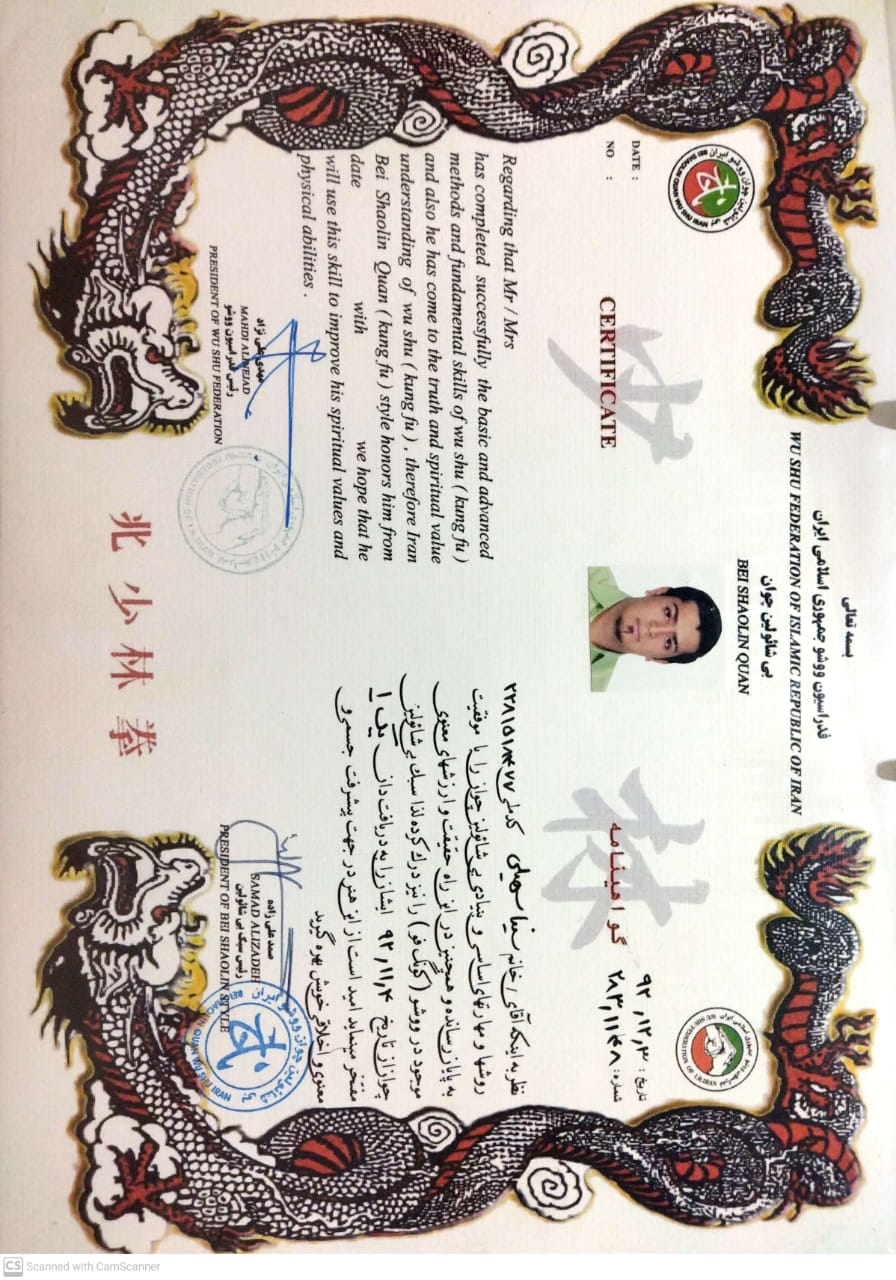 بسمه تعالی
فدراسیون ووشو جمهوری اسلامی ایران
WU SHU FEDERATION OF ISLAMIC REPUBLIC OF IRAN
بی شائولین جوان
BEI SHAOLIN QUAN
DATE :
NO :
CERTIFICATE
少
Regarding that Mr / Mrs
has completed successfully the basic and advanced
methods and fundamental skills of wu shu ( kung fu )
and also he has come to the truth and spiritual value
understanding of wu shu ( kung fu ) , therefore Iran
Bei Shaolin Quan ( kung fu ) style honors him from
date with we hope that he
will use this skill to improve his spiritual values and
physical abilities .
مهدی علی نژاد
MAHDI ALINEJAD
رئیس فدراسیون ووشو
PRESIDENT OF WU SHU FEDERATION
تاریخ : ۹۲,۱۲,۳
شماره :
گواهینامه
林
نظر به اینکه آقای / خانم سینا کدملی
روشها و مهارتهای اساسی و بنیادی بی شائولین جوان را با موفقیت
به پایان رسانده و همچنین در این راه حقیقت و ارزشهای معنوی
موجود در ووشو (کونگ فو) را نیز درک کرده لذا سبک بی شائولین
جوان از تاریخ ۹۲,۱۱,۴ ایشان را به دریافت دان یک ۱
مفتخر مینماید امید است از این هنر در جهت پیشرفت جسمی و
معنوی و اخلاقی خویش بهره گیرید
صمد علی زاده
SAMAD ALIZADEH
رئیس سبک بی شائولین
PRESIDENT OF BEI SHAOLIN STYLE
北少林拳
CS Scanned with CamScanner